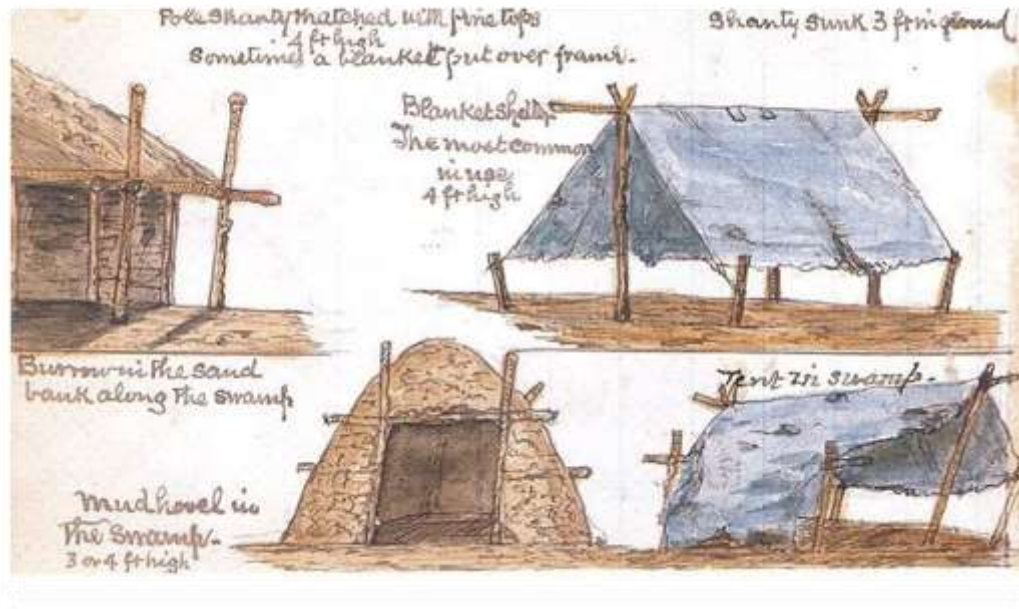 Pole Shanty thatched with pine tops
4 ft high
Sometimes a blanket put over frame.
Shanty Sunk 3 ft in ground
Blanket shelter.
The most common
in use
4 ft high
Burrow in the sand
bank along the swamp
Tent in swamp.
Mud hovel in
the swamp.
3 or 4 ft high